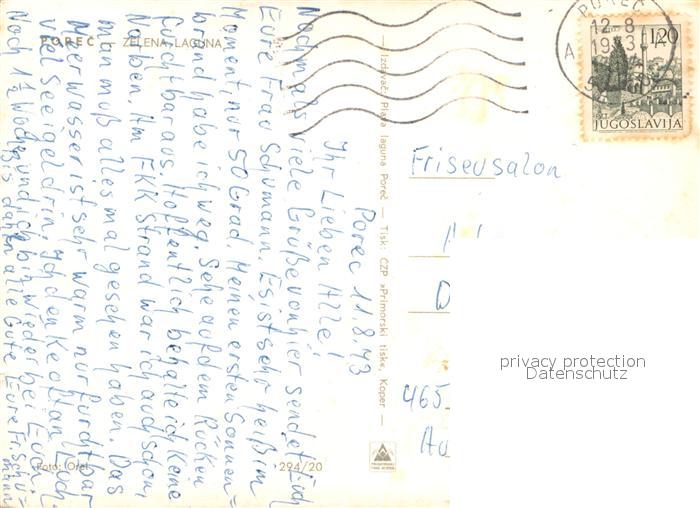 POREČ ZELENA LAGUNA
Porec 11.8.73
Ihr Lieben Alle!
Nochmals viele Grüße von hier sendet Euch
Eure Frau Schumann. Es ist sehr heiß im
Moment, nur 50 Grad. Meinen ersten Sonnen=
brand habe ich weg. Sehe auf dem Rücken
furchtbar aus. Hoffentlich behalte ich keine
Narben. Am FKK Strand war ich auch schon,
man muß alles mal gesehen haben. Das
Meerwasser ist sehr warm nur furchtbar
viel Seeigel drin. Ich denke oft an Euch.
Noch 1½ Woche und ich bin wieder bei Euch.
Bis dahin alle Gute Eure Fr. Schu=
mann
Foto: Orel
294/20
— Izdavač: Plava laguna Poreč — Tisk: ČZP »Primorski tisk«, Koper —
POREČ
12-8
A
1,20
JUGOSLAVIJA
Friseusalon
465
privacy protection
Datenschutz